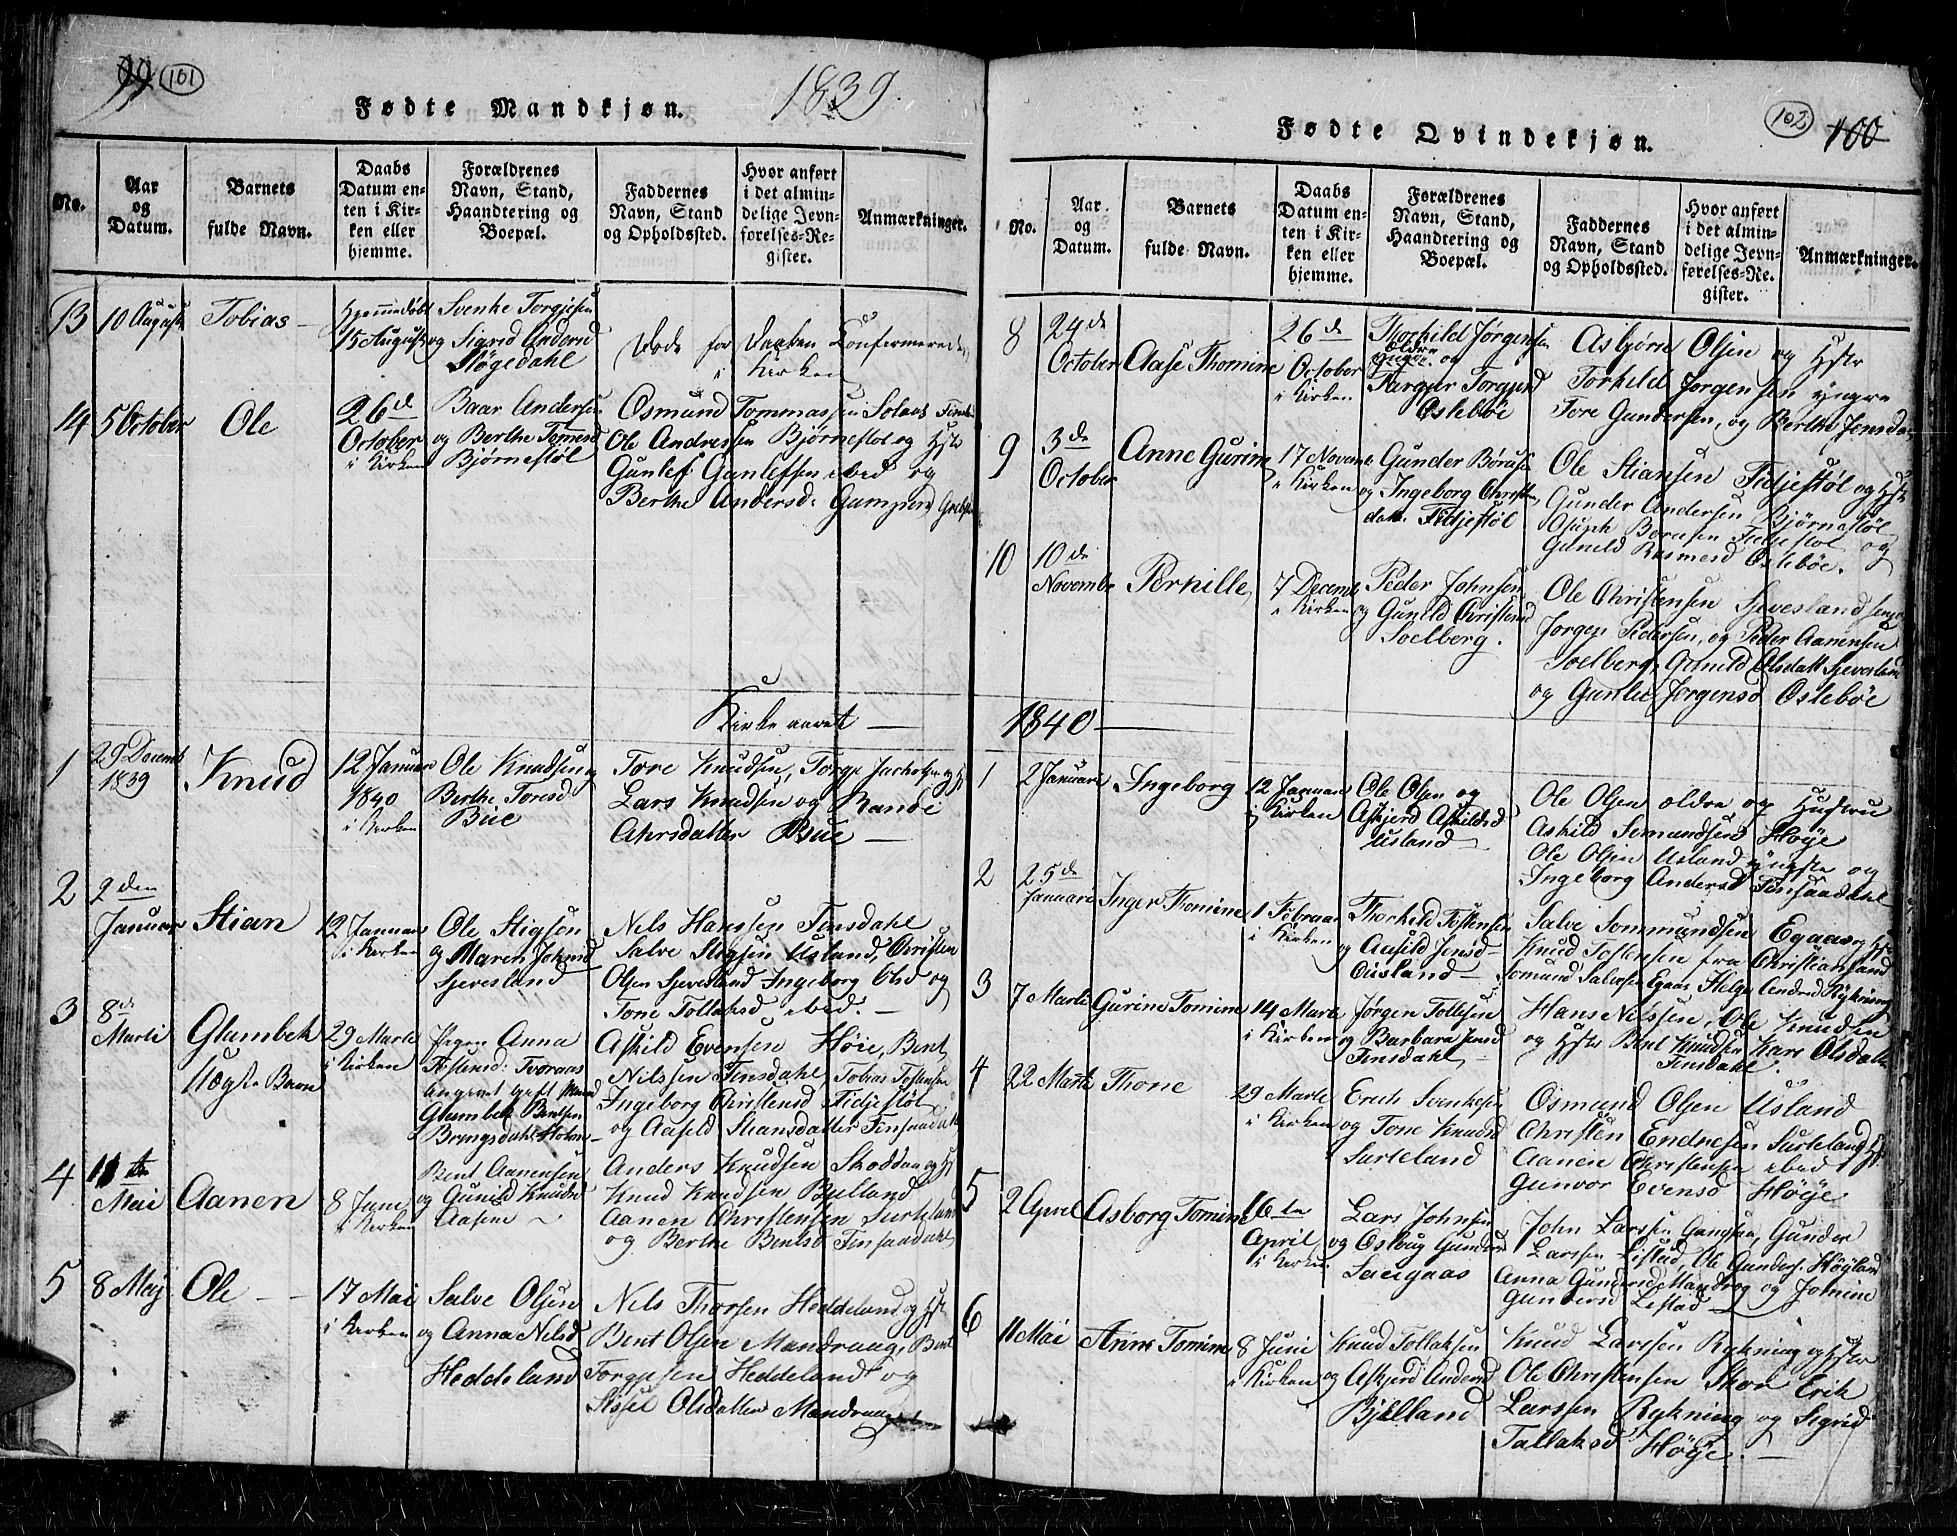 99 101
Fødte Mandkjøn. 1839.
No.
Aar og Datum.
Barnets fulde Navn.
Daabs Datum enten i Kirken eller hjemme.
Forældrenes Navn, Stand, Haandtering og Boepæl.
Faddernes Navn, Stand og Opholdssted.
Hvor anført i det almindelige Jevnførelses-Register.
Anmærkninger.
13 10 August Tobias Hjemmedøbt
15 August
Svenke Torgjesen
og Sigrid Anders
Høgedahl
Døde før Daaben Confirmeredes
i Kirken
14 5 October Ole 26de
October
i Kirken
Baar Andersen
og Berthe Tomesd
Bjørnestøl
Osmund Tommassen
Ole Andressen Bjørnestøl og Hstr
Gunlef Gunlefsen ibid og
Berthe Andersd:
Kirke aaret —
1 29 Decemb
1839
Knud
12 Januar
1840
i Kirken
Ole Knudsen og
Berthe Toresd
Bue
Tore Knudsen, Torge
Lars Knudsen og Randi
Ahrsdatter Bue —
2 2den
Januar
Stian
12 Januar
i Kirken
Ole Stigsen
og Maren Johnsd
Sjevesland
Nils Hanssen Finsdahl
Salve Stigsen Usland, Christen
Olsen Sjevesland Ingeborg Olsd og
Tone Tollaksd ibed. —
3 8de
Marti
Glambek
Uægte Barn
29 Marti
i Kirken
Pigen Anna
Tostensd: Tvoraas
angivet gift Mand
Glambek Bentsen
Bringsdahl Holm
Askild Evensen Høie, Bent
Nilssen Finsdahl, Tobias Tostensen
Ingeborg Christensd Fidjestøl
og Aaseld Stiansdatter Finsaadahl
4 11te
Mai
Aanen
8 Juni
i Kirken
Bent Aanensen
og Guneld Knudsd
Aasen
Anders Knudsen Skoddan og H
Knud Knudsen Bjelland
Aanen Christensen Surteland
og Berthe Bentsd Finsaadahl
5 8 Maj Ole —
17 Mai
i Kirken
Salve Olsen
og Anna Nilsd
Heddeland
Nils Thorsen Heddeland og Hst
Bent Olsen Mandraag, Bent
Torgjesen Heddeland og
Sissel Olsdatter Mandraag
102 100
Fødte Qvindekjøn.
No.
Aar og Datum.
Barnets fulde Navn.
Daabs Datum enten i Kirken eller hjemme.
Forældrenes Navn, Stand, Haandtering og Boepæl.
Faddernes Navn, Stand og Opholdssted.
Hvor anført i det almindelige Jevnførelses-Register.
Anmærkninger.
8 24de
October
Aase Thomine
26de
October
i Kirken
Thorkild Jørgensen
ældre
og
Targier Torgusd
Oslebøe
Asbjørn Olsen og Hstr
Torkild Jørgensen yngre
Tore Gundersen, og Berthe Jensda
9 3de
October
Anne Gurine
17 Novemb
i Kirken
Gunder Børusen
og Ingeborg Christens
datt: Fidjestøl
Ole Stiansen Fidjestøl og Hstr
Gunder Andersen Bjørnestøl
Asuph Borusen Fidjestøl og
Guneld Rasmusd Oslebøe.
10 10de
Novembr
Pernille
7 Decemb
i Kirken
Peder Johnsen
og Guneld Christensd
Soelberg.
Ole Christensen Sjevesland
Jørgen Pedersen, og Peder Aanensen
Soelberg, Guneld Olsdatt Sjevesland
og Gunlei Jørgensd Oslebøe
1840 —
1 2 Januari Ingeborg
12 Januar
i Kirken
Ole Olsen og
Askjerd Askildsd
Usland —
Ole Olsen ældre og Hustru
Askild Somundsen Høje
Ole Olsen Usland yngste og
Ingeborg Andersd Finsaadahl
2 25de
Januari
Inger Thomine
1 Februar
i Kirken
Thorkild Tostensen
og Aaseld Jensd
Ousland —
Salve Sommundsen Egaas og Hst
Knud Tostensen fra Christiansand
Somund Salvesen Egaas Helge Rykning
3 7 Marti Gurine Tomine
14 Mart
i Kirken
Jørgen Tollefsen
og Barbara Jensd
Finsdahl —
Hans Nilssen, Ole Knudsen
og Hstr Bent Knudsen Kari Olsdatt
Finsdahl.
4 22 Marti Thone
29 Marti
i Kirken
Erich Svenkesen
og Tone Knudsd
Surteland
Osmund Olsen Usland
Christen Endresen Surteland Hst
Aanen Christensen ibed
Gunvor Evensd Høye
5 2 April Asborg Tomine
16te
April
i Kirken
Lars Johnsen
og Oslaug Gundersd
Saugaas
John Larssen Gangsaa, Gunder
Larssen Lestad, Ole Gunders: Høyland
Anna Gundersd Mandrog og Jomine
Gundersd Lestad —
6 11 Mai Anne Tomine
8 Juni
i Kirken
Knud Tollaksen
og Askjerd Andersd
Bjelland
Knud Larssen Rykning og Hstr
Ole Christensen Skou Erik
Larssen Rykning og Sigrid
Tallaksd Høye. —